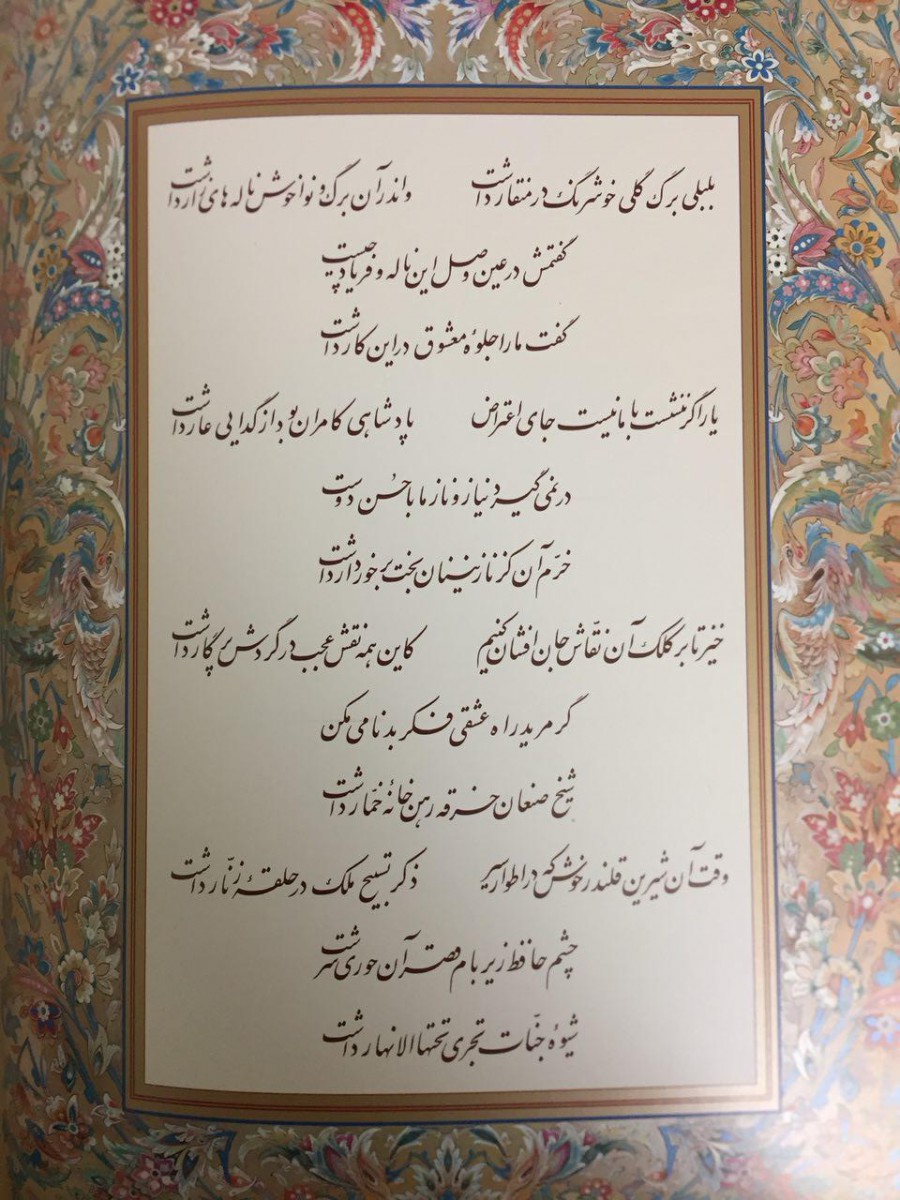 بلبلی برگ گلی خوشرنگ در منقار داشت    واندر آن برگ و نوا خوش ناله های زار داشت
گفتمش در عین وصل این ناله و فریاد چیست
گفت ما را جلوهٔ معشوق در این کار داشت
یار اگر ننشست با ما نیست جای اعتراض    پادشاهی کامران بود از گدایی عار داشت
در نمی گیرد نیاز و ناز ما با حُسن دوست
خرّم آن کز نازنینان بخت برخوردار داشت
خیز تا بر کلک آن نقّاش جان افشان کنیم    کاین همه نقش عجب در گردش پرگار داشت
گر مرید راه عشقی فکر بدنامی مکن
شیخ صنعان خرقه رهن خانهٔ خمّار داشت
وقت آن شیرین قلندر خوش که در اطوار سیر    ذکر تسبیح ملک در حلقهٔ زنّار داشت
چشم حافظ زیر بام قصر آن حوری سرشت
شیوهٔ جنّات تجری تحتها الانهار داشت